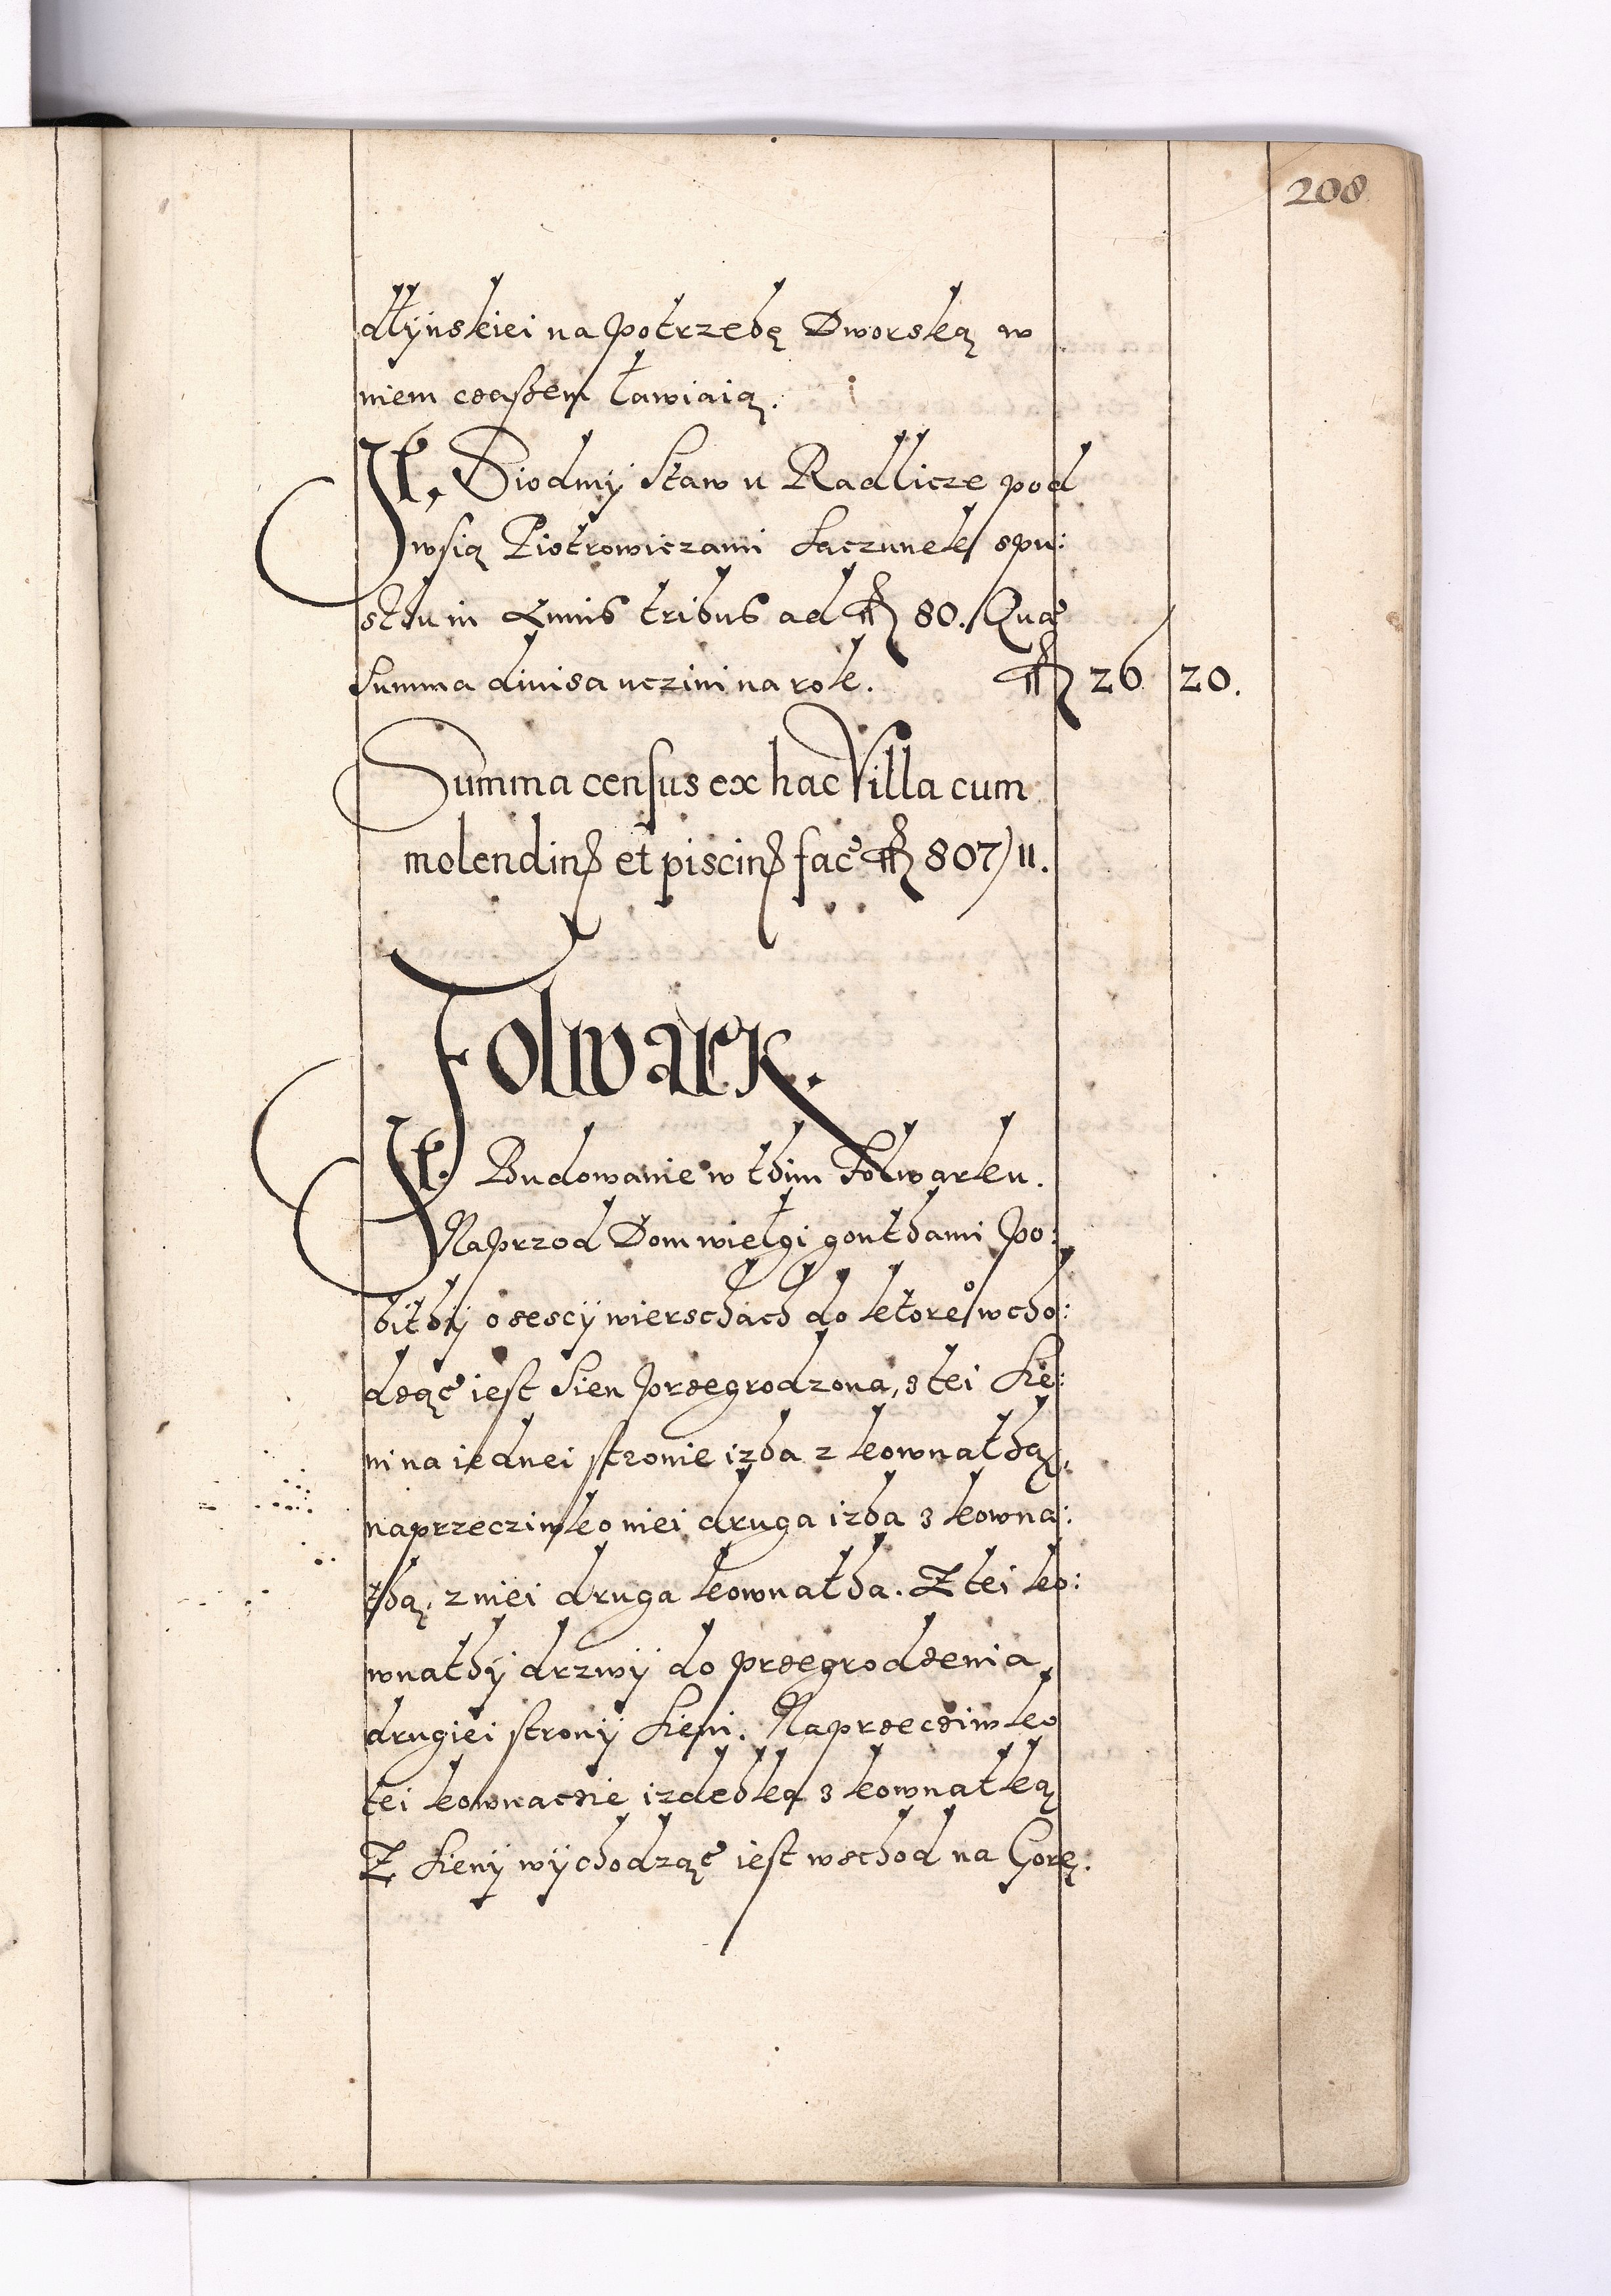 208
dłÿnskiei na potrzebę Dworską w
niem czaßem ławiaią.
It, Siodmÿ Staw u Radlicze pod
wsią Piotrowiczami Saczunek spu:
sthu in Annis tribus ad fl 80. Quae
summa diuisa uczini na rok. fl 26 20.
Summa census ex hac Villa cum
molendin et piscin fac fl 807/11.
Folwark.
It. Budowanie w thim Folwarku.
Naprzod Dom wielgi gonthami po:
bithÿ o sescÿ wierschach do ktore° wcho:
dząc iest Sien przegrodzona, z tei Sie:
ni na iednei stronie izba z kownathą,
naprzeciwko niei druga izba z kowna:
thą, z niei druga kownatha. Z tei ko:
wnathÿ drzwÿ do przegrodzenia
drugiei stronÿ Sieni. Naprzeciwko
tei kownacie izdebka z kownatką
Z Sienÿ wÿchodząc iest wschod na Gorę.